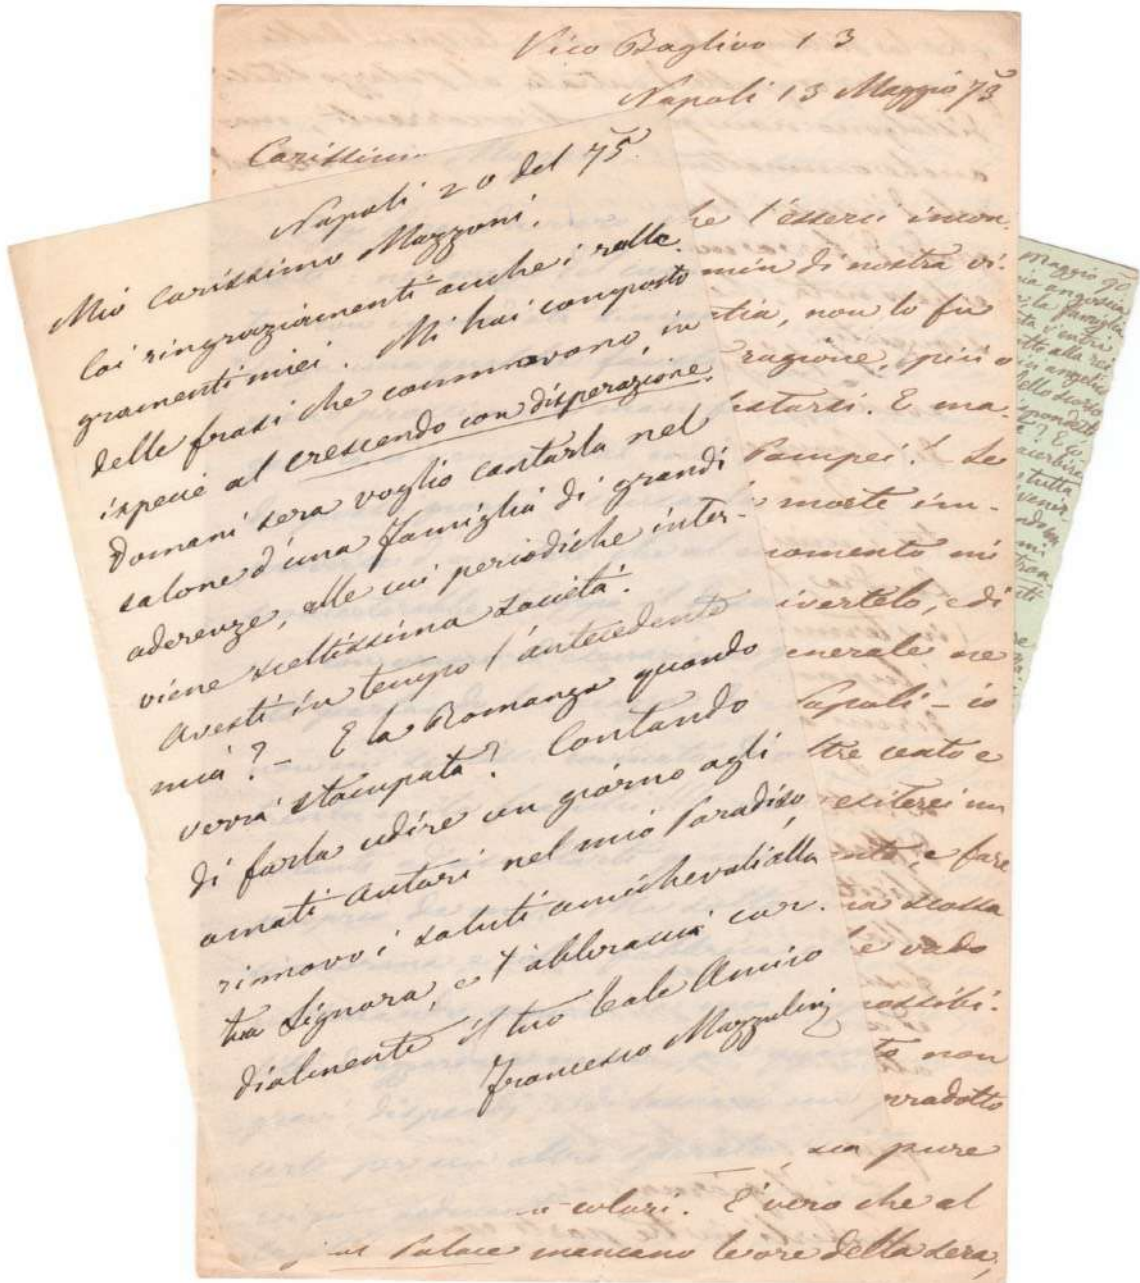 Vico Baglivo 13
Napoli 13 Maggio 73
Carissimo
Napoli 20 del 75.
Mio carissimo Mazzoni.
Coi ringraziamenti anche i ralle-
gramenti miei. Mi hai composto
delle frasi che commovono, in
ispecie al crescendo con disperazione.
Domani sera voglio cantarla nel
salone d'una famiglia di grandi
aderenze, alle cui periodiche inter-
viene sceltissima società.
Avesti in tempo l'antecedente
mia? - E la Romanza quando
verrà stampata? Contando
di farla udire un giorno agli
amati autori nel mio Paradiso,
rinnovo i saluti amichevoli alla
tua Signora, e t'abbraccia cor-
dialmente il tuo leale Amico
Francesco Mazzolini
he l'esserci incon
min di nostra vi-
tia, non lo fu
ragione, più o
festarsi. E ma-
Pompei! Le
morte im-
momento mi
ivertelo, e di
enerale ne
Napoli - io
tre cento e
esiterei un
e fare
scossa
e vado
possibi-
non
rradotto
sia pure
colori. È vero che al
Palace mancano le ore della sera,
Maggio 90
angoscia
la famiglia
alla
in angelo
dello scorso
tutta